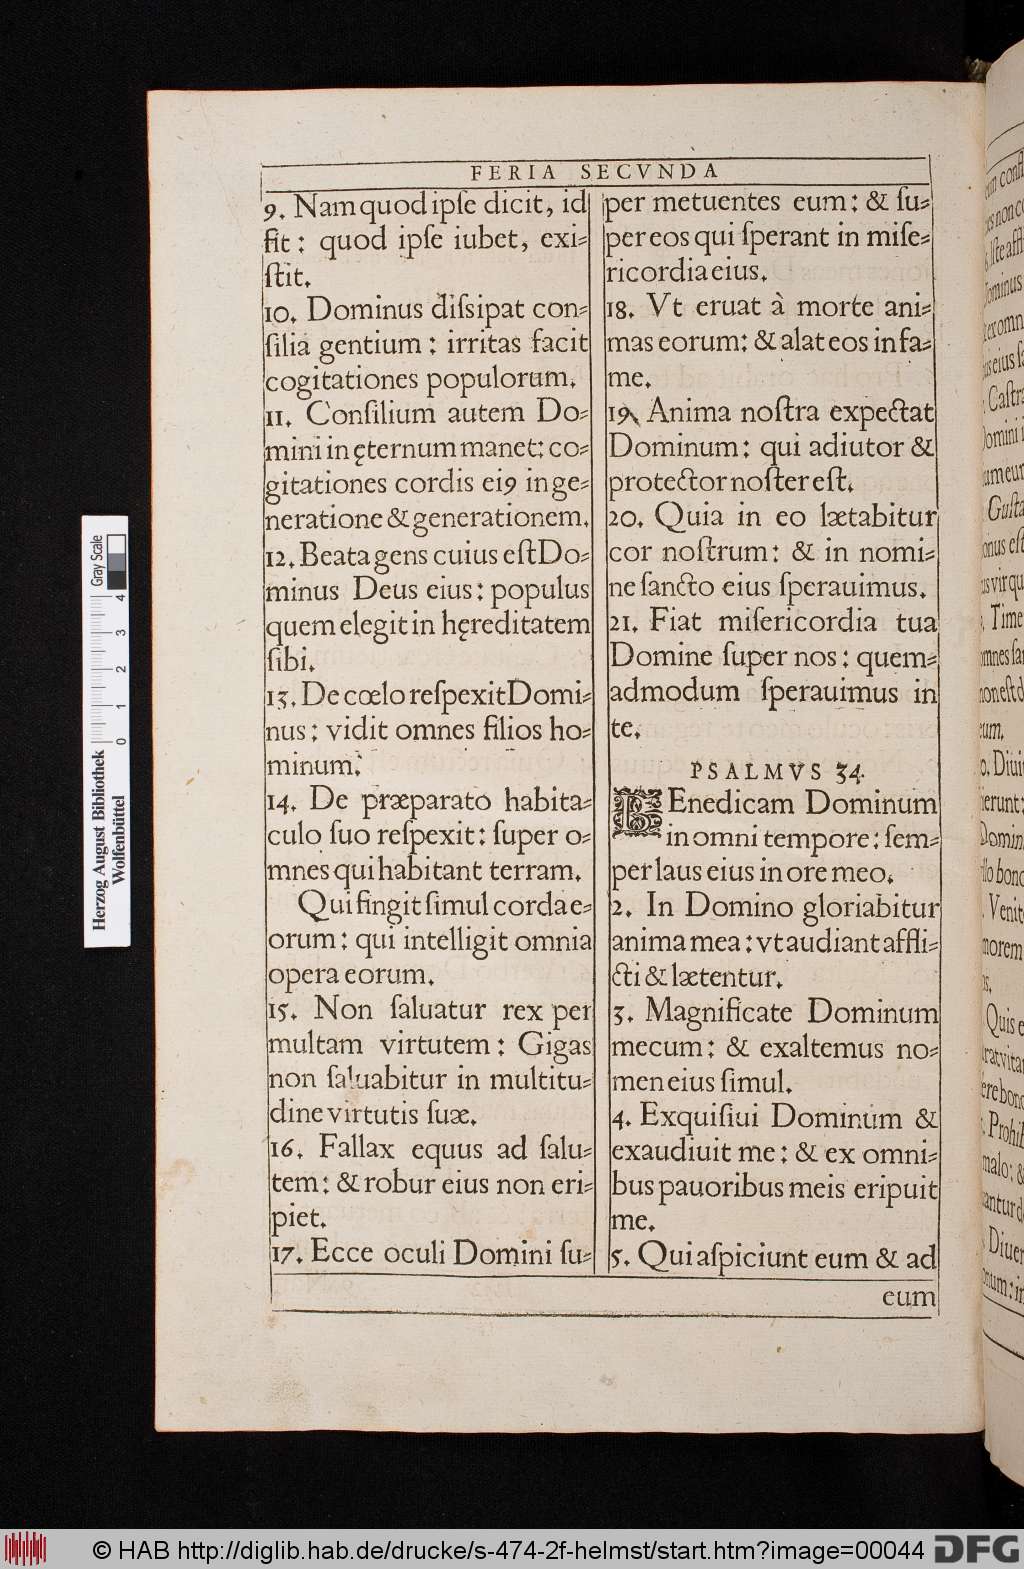 FERIA SECVNDA
9. Nam quod ipſe dicit, id
fit: quod ipſe iubet, exi-
ſtit.
10. Dominus diſsipat con-
ſilia gentium: irritas facit
cogitationes populorum.
11. Conſilium autem Do-
mini in ęternum manet: co-
gitationes cordis eiꝰ in ge-
neratione & generationem.
12. Beata gens cuius eſt Do-
minus Deus eius: populus
quem elegit in hęreditatem
ſibi.
13. De cœlo reſpexit Domi-
nus: vidit omnes filios ho-
minum.
14. De præparato habita-
culo ſuo reſpexit: ſuper o-
mnes qui habitant terram.
Qui fingit ſimul corda e-
orum: qui intelligit omnia
opera eorum.
15. Non ſaluatur rex per
multam virtutem: Gigas
non ſaluabitur in multitu-
dine virtutis ſuæ.
16. Fallax equus ad ſalu-
tem: & robur eius non eri-
piet.
17. Ecce oculi Domini ſu-
per metuentes eum: & ſu-
per eos qui ſperant in miſe-
ricordia eius.
18. Vt eruat à morte ani-
mas eorum: & alat eos in fa-
me.
19. Anima noſtra expectat
Dominum: qui adiutor &
protector noſter eſt.
20. Quia in eo lætabitur
cor noſtrum: & in nomi-
ne ſancto eius ſperauimus.
21. Fiat miſericordia tua
Domine ſuper nos: quem-
admodum ſperauimus in
te.
PSALMVS 34.
BEnedicam Dominum
in omni tempore: ſem-
per laus eius in ore meo.
2. In Domino gloriabitur
anima mea: vt audiant affli-
cti & lætentur.
3. Magnificate Dominum
mecum: & exaltemus no-
men eius ſimul.
4. Exquiſiui Dominum &
exaudiuit me: & ex omni-
bus pauoribus meis eripuit
me.
5. Qui aſpiciunt eum & ad
eum
Herzog August Bibliothek
Wolfenbüttel
0 1 2 3 4
Gray Scale
© HAB http://diglib.hab.de/drucke/s-474-2f-helmst/start.htm?image=00044
DFG